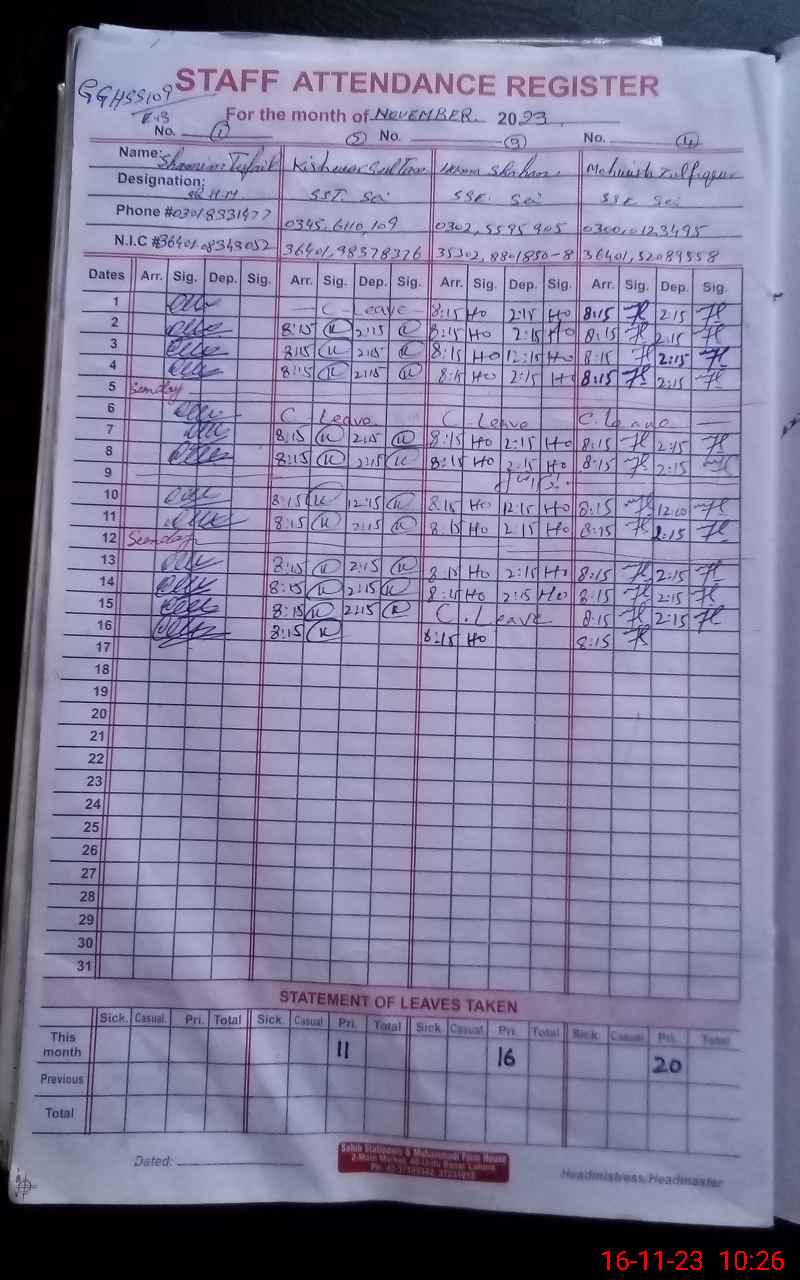 GGHSS109
E.B
STAFF ATTENDANCE REGISTER
For the month of NOVEMBER. 2023.
No. 1 2 No. 3 No. 4
Name: Kishwar Sultan Mehwish Zulfiqar
Designation: Sr H.M. SST. Sci SSE. Sci SSE Sci
Phone # 0345,6110,109 0302,5595905 0300,0123495
N.I.C # 36401,98378376 35302,8801850-8 36401,52089558
Dates Arr. Sig. Dep. Sig. Arr. Sig. Dep. Sig. Arr. Sig. Dep. Sig. Arr. Sig. Dep. Sig.
1 C. Leave 8:15 HO 2:15 HO 8:15 2:15
2 8:15 2:15 8:15 HO 2:15 HO 8:15 2:15
3 8:15 2:15 8:15 HO 12:15 HO 8:15 2:15
4 8:15 2:15 8:15 HO 2:15 H 8:15 2:15
5 Sunday
6 C. Leave C. Leave C. Leave
7 8:15 2:15 8:15 HO 2:15 HO 8:15 2:15
8 8:15 2:15 8:15 HO 2:15 HO 8:15 2:15
9
10 8:15 12:15 8:15 HO 12:15 HO 8:15 12:00
11 8:15 2:15 8:15 HO 2:15 HO 8:15 2:15
12 Sunday
13 8:15 2:15 8:15 HO 2:15 HO 8:15 2:15
14 8:15 2:15 8:15 HO 2:15 HO 8:15 2:15
15 8:15 2:15 C. Leave 8:15 2:15
16 8:15 8:15 HO 8:15
17
18
19
20
21
22
23
24
25
26
27
28
29
30
31
STATEMENT OF LEAVES TAKEN
Sick. Casual. Pri. Total Sick. Casual Pri. Total Sick. Casual. Pri. Total Sick. Casual Pri. Total
This month 11 16 20
Previous
Total
Dated:
Sahib Stationers & Muhammadi Form House
2-Main Market, 40-Urdu Bazar Lahore
Headmistress, Headmaster
16-11-23 10:26